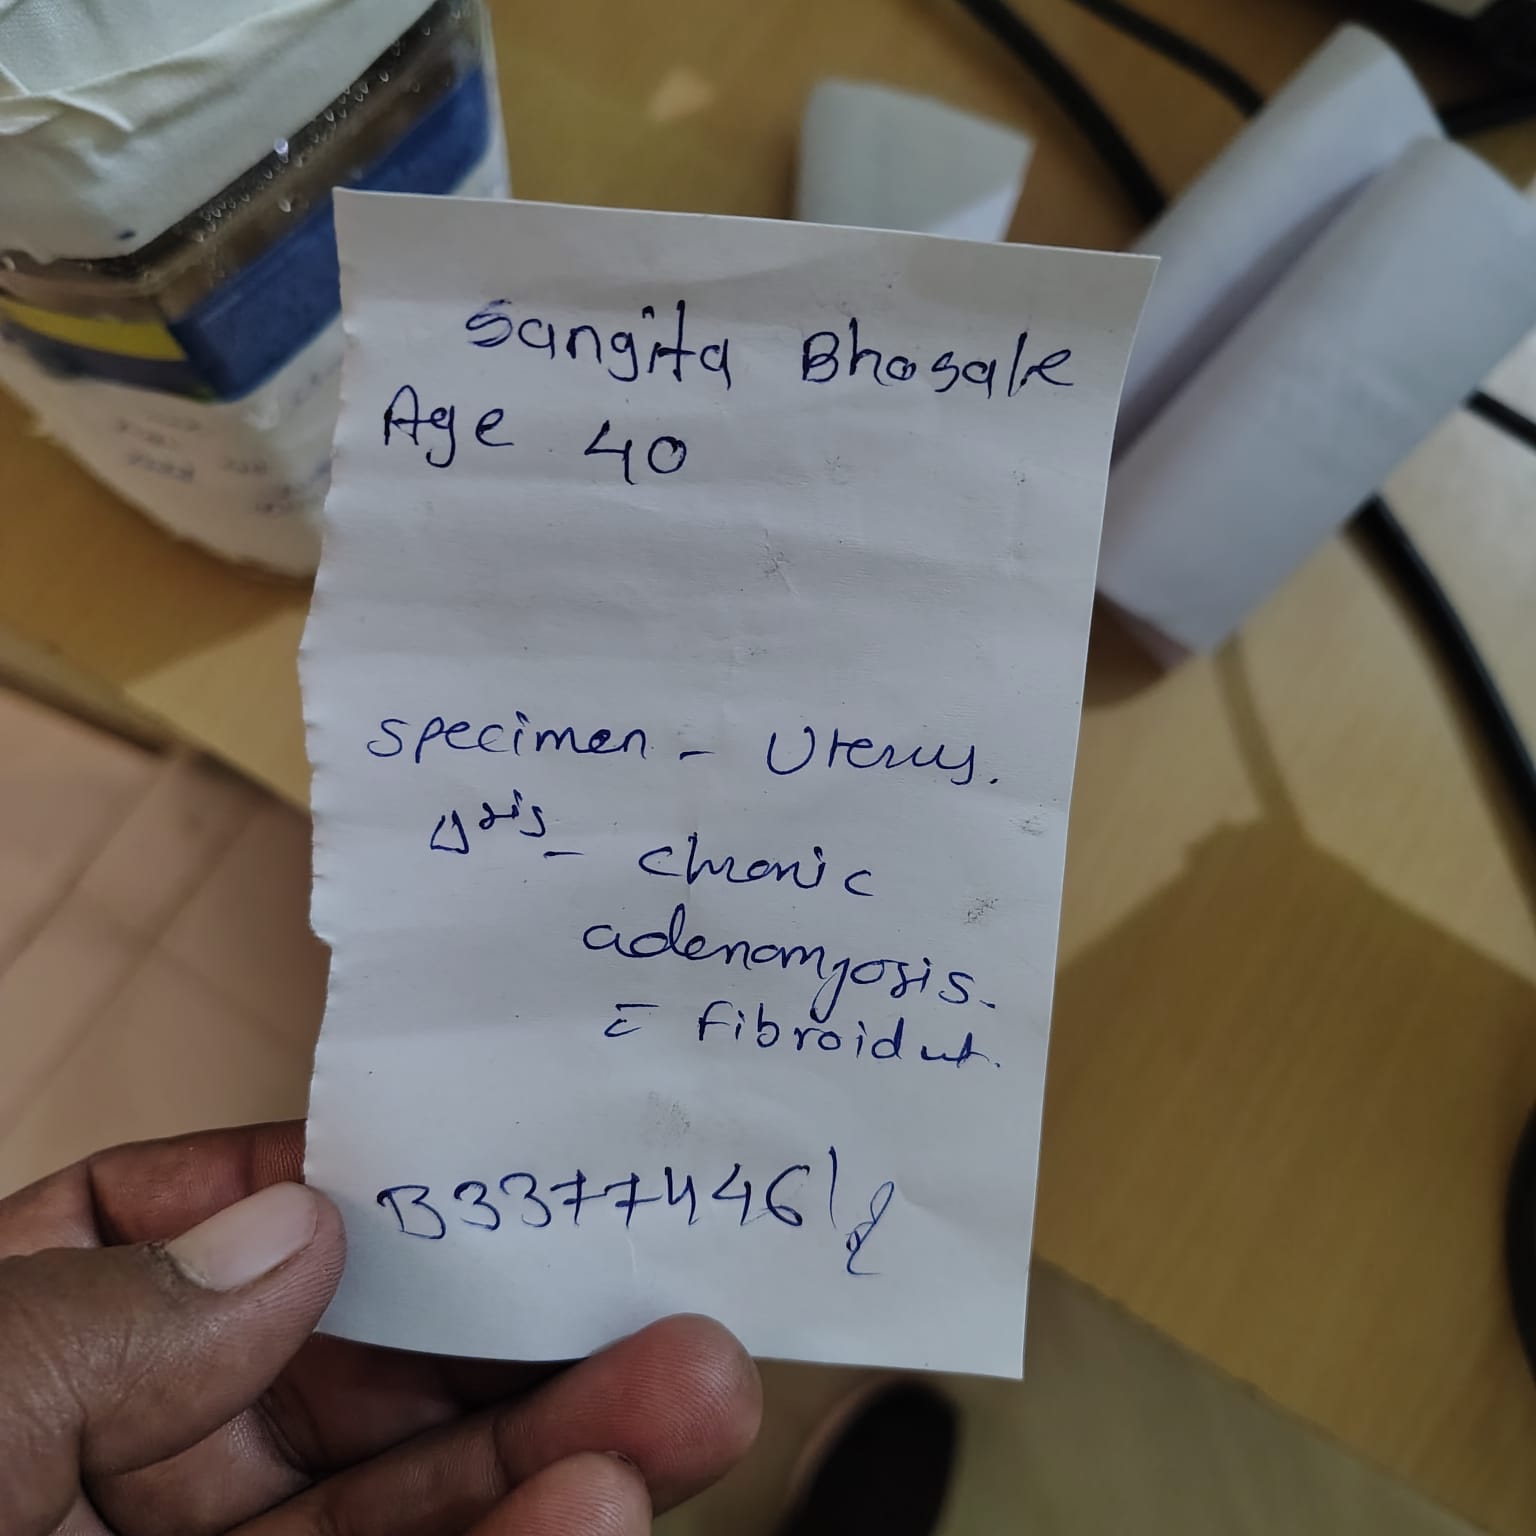 Sangita Bhosale
Age 40
Specimen - Uterus.
Δsis - chronic
adenomyosis.
c̄ fibroid ut.
B33774461